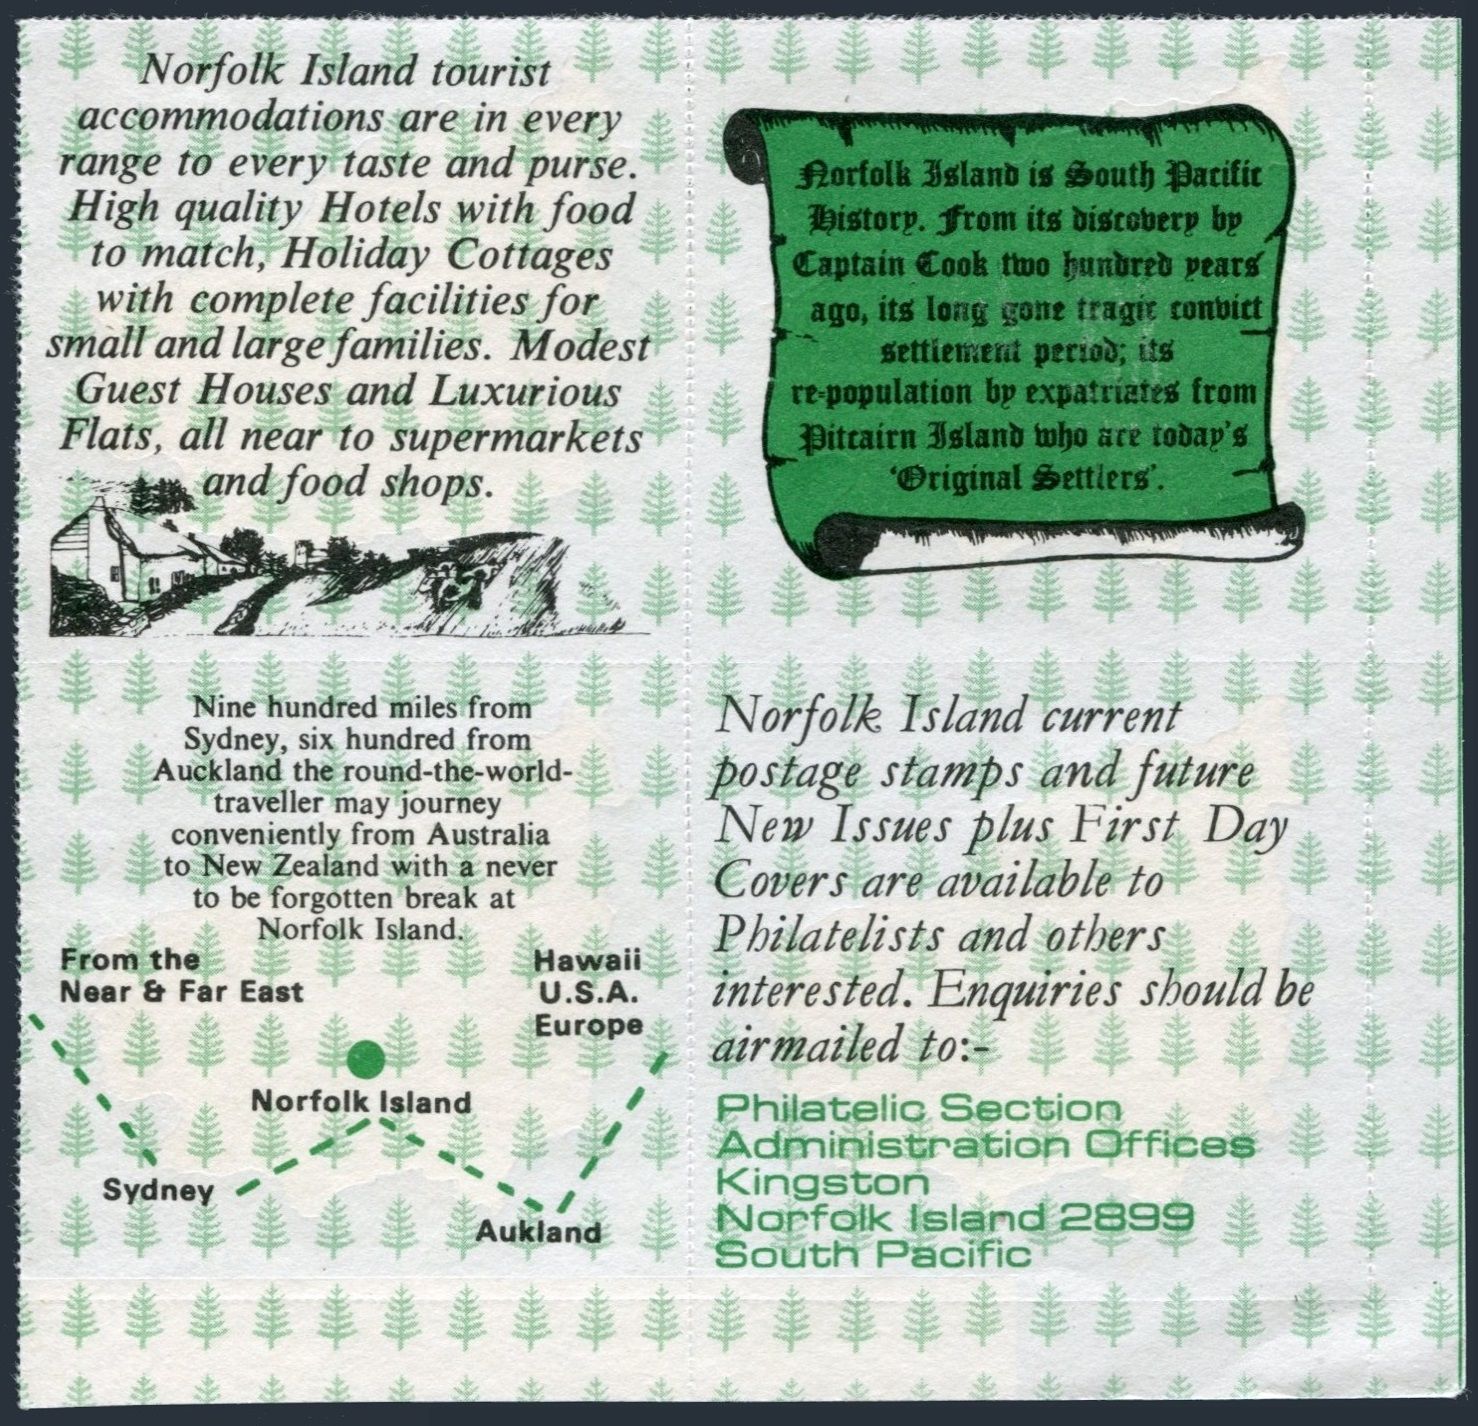 Norfolk Island tourist
accommodations are in every
range to every taste and purse.
High quality Hotels with food
to match, Holiday Cottages
with complete facilities for
small and large families. Modest
Guest Houses and Luxurious
Flats, all near to supermarkets
and food shops.
Norfolk Island is South Pacific
History. From its discovery by
Captain Cook two hundred years
ago, its long gone tragic convict
settlement period; its
re-population by expatriates from
Pitcairn Island who are today's
'Original Settlers'.
Nine hundred miles from
Sydney, six hundred from
Auckland the round-the-world-
traveller may journey
conveniently from Australia
to New Zealand with a never
to be forgotten break at
Norfolk Island.
From the
Near & Far East
Hawaii
U.S.A.
Europe
Norfolk Island
Sydney
Aukland
Norfolk Island current
postage stamps and future
New Issues plus First Day
Covers are available to
Philatelists and others
interested. Enquiries should be
airmailed to:-
Philatelic Section
Administration Offices
Kingston
Norfolk Island 2899
South Pacific